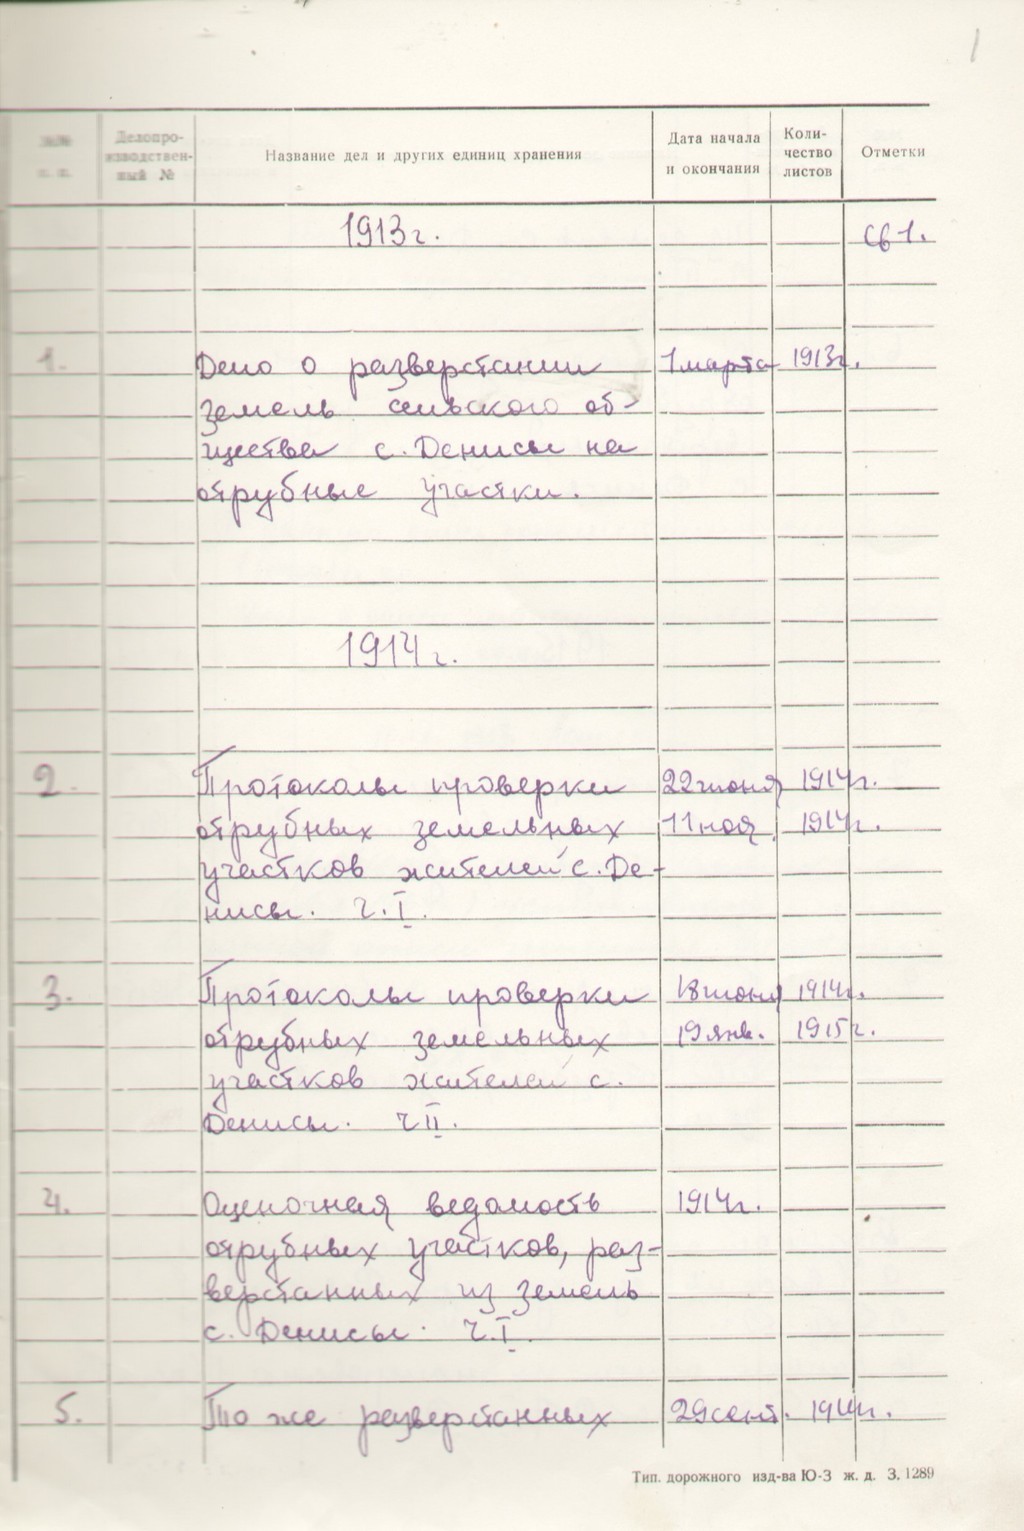 1
№№ п. п.
Делопро-
изводствен-
ный №
Название дел и других единиц хранения
Дата начала
и окончания
Коли-
чество
листов
Отметки
1913г. св 1.
1. Дело о разверстании 1 марта 1913г.
земель сельского об-
щества с. Денисы на
отрубные участки.
1914г.
2. Протоколы проверки 22 июня 1914г.
отрубных земельных 11 ноя. 1914г.
участков жителей с. Де-
нисы. ч. I.
3. Протоколы проверки 18 июня 1914г.
отрубных земельных 19 янв. 1915г.
участков жителей с.
Денисы. ч II.
4. Оценочная ведомость 1914г.
отрубных участков, раз-
верстанных из земель
с. Денисы. ч. I.
5. То же разверстанных 29 сент. 1914г.
Тип. дорожного изд-ва Ю-З ж. д. З. 1289